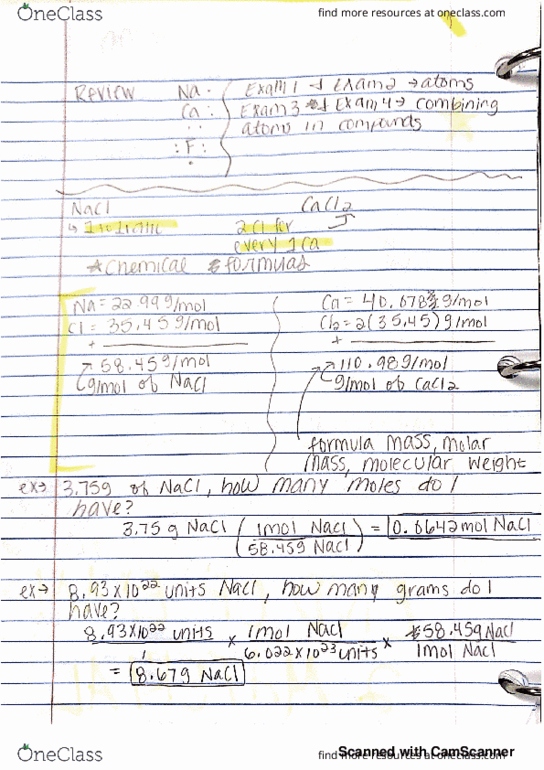 OneClass
find more resources at oneclass.com
Review Na· Exam 1 + Exam 2 → atoms
Ca: Exam 3 + Exam 4 → combining
atoms in compounds
:F:
NaCl CaCl2
↳ 2 Cl for
every 1 Ca
*Chemical formulas
Na = 22.99g/mol Ca = 40.078g/mol
Cl = 35.45g/mol Cl2 = 2(35.45)g/mol
+ +
58.45g/mol 110.98g/mol
g/mol of NaCl g/mol of CaCl2
formula mass, molar
mass, molecular weight
ex→ 3.75g of NaCl, how many moles do I
have?
3.75 g NaCl (1 mol NaCl / 58.45g NaCl) = 0.0642 mol NaCl
ex→ 8.93x10^22 units NaCl, how many grams do I
have?
8.93x10^22 units / 1 x 1 mol NaCl / 6.022x10^23 units x 58.45g NaCl / 1 mol NaCl
= 8.67g NaCl
Scanned with CamScanner
OneClass
find more resources at oneclass.com